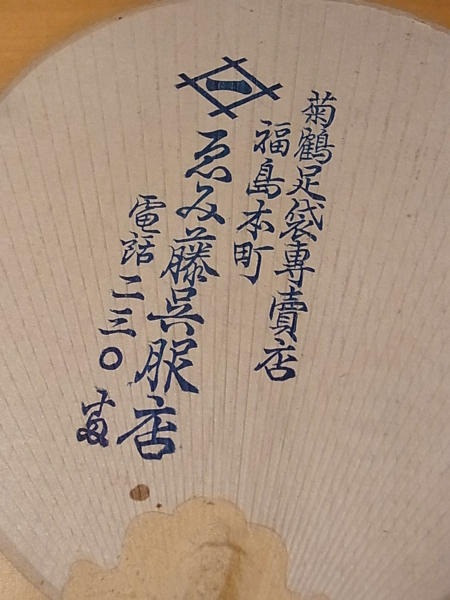 菊鶴足袋專賣店
福島本町
ゑみ藤呉服店
電話二三〇番